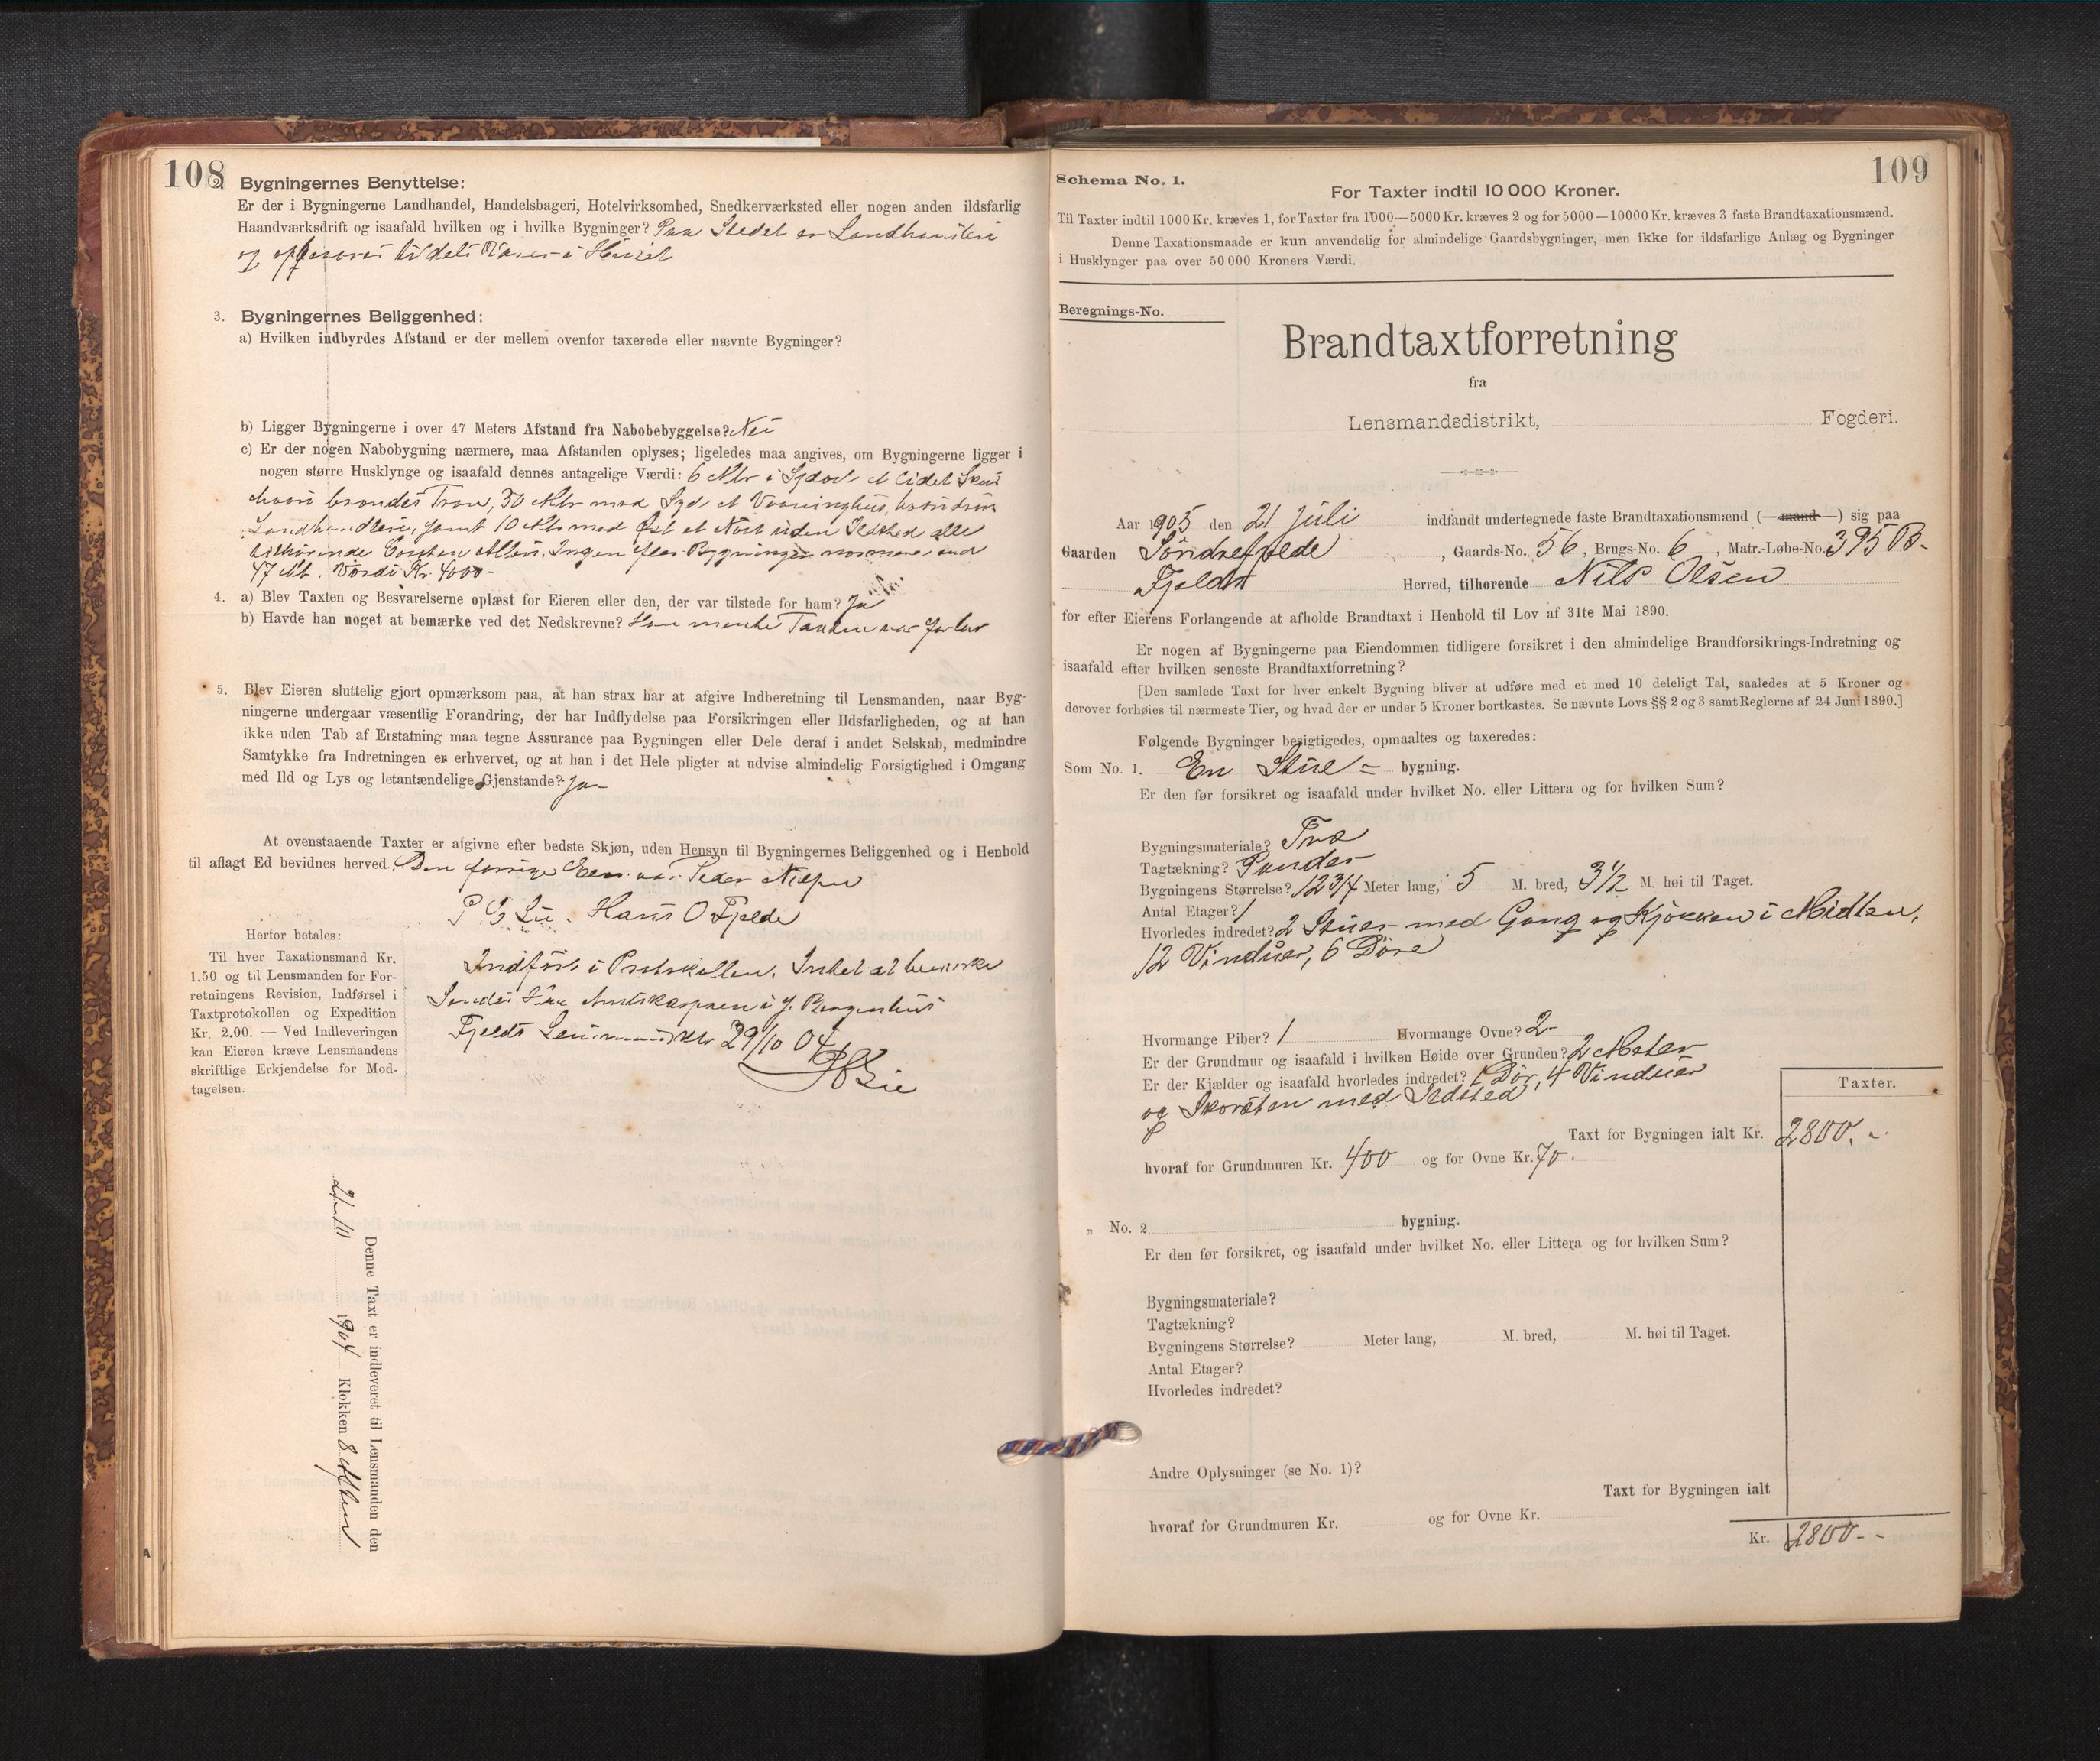 108
2. Bygningernes Benyttelse:
Er der i Bygningerne Landhandel, Handelsbageri, Hotelvirksomhed, Snedkerværksted eller nogen anden ildsfarlig
Haandværksdrift og isaafald hvilken og i hvilke Bygninger? Paa Stedet er Landhandleri
og opbevares tildels Varer i Huset
3. Bygningernes Beliggenhed:
a) Hvilken indbyrdes Afstand er der mellem ovenfor taxerede eller nævnte Bygninger?
b) Ligger Bygningerne i over 47 Meters Afstand fra Nabobebyggelse? Nei
c) Er der nogen Nabobygning nærmere, maa Afstanden oplyses; ligeledes maa angives, om Bygningerne ligger i
nogen større Husklynge og isaafald dennes antagelige Værdi: 6 Mtr i Sydost et lidet Skur
hvori brændes Tran, 30 Mtr mod Syd et Vaaningshus, hvori
Landhandleri, samt 10 Mtr mod Øst et Nøst uden Ildsted alle
tilhørende Ingen flere Bygninger nærmere end
47 Mt. Værdi Kr. 4000-
4. a) Blev Taxten og Besvarelserne oplæst for Eieren eller den, der var tilstede for ham? Ja
b) Havde han noget at bemærke ved det Nedskrevne? Han mente Taxten var for lav
5. Blev Eieren sluttelig gjort opmærksom paa, at han strax har at afgive Indberetning til Lensmanden, naar Byg-
ningerne undergaar væsentlig Forandring, der har Indflydelse paa Forsikringen eller Ildsfarligheden, og at han
ikke uden Tab af Erstatning maa tegne Assurance paa Bygningen eller Dele deraf i andet Selskab, medmindre
Samtykke fra Indretningen er erhvervet, og at han i det Hele pligter at udvise almindelig Forsigtighed i Omgang
med Ild og Lys og letantændelige Gjenstande? Ja-
At ovenstaaende Taxter er afgivne efter bedste Skjøn, uden Hensyn til Bygningernes Beliggenhed og i Henhold
til aflagt Ed bevidnes herved. Den forrige Eier var Peder Nilsen
Hans O Fjelde
Herfor betales:
Til hver Taxationsmand Kr.
1.50 og til Lensmanden for For-
retningens Revision, Indførsel i
Taxtprotokollen og Expedition
Kr. 2.00. — Ved Indleveringen
kan Eieren kræve Lensmandens
skriftlige Erkjendelse for Mod-
tagelsen.
Indført i Protokollen. Intet at bemærke
Sendes Hr. Amtskasseren i S. Bergenhus
Fjelds Lensmandsktr 29/10 04
Denne Taxt er indleveret til Lensmanden den
1904 Klokken 8 Aften
109
Schema No. 1.
For Taxter indtil 10 000 Kroner.
Til Taxter indtil 1000 Kr. kræves 1, for Taxter fra 1000—5000 Kr. kræves 2 og for 5000—10000 Kr. kræves 3 faste Brandtaxationsmænd.
Denne Taxationsmaade er kun anvendelig for almindelige Gaardsbygninger, men ikke for ildsfarlige Anlæg og Bygninger
i Husklynger paa over 50 000 Kroners Værdi.
Beregnings-No.
Brandtaxtforretning
fra
Lensmandsdistrikt, Fogderi.
Aar 1905 den 21 Juli indfandt undertegnede faste Brandtaxationsmænd (—mand—) sig paa
Gaarden Söndrefjelde, Gaards-No. 56, Brugs-No. 6, Matr.-Løbe-No. 395 B.
Fjeld Herred, tilhørende Nils Olsen
for efter Eierens Forlangende at afholde Brandtaxt i Henhold til Lov af 31te Mai 1890.
Er nogen af Bygningerne paa Eiendommen tidligere forsikret i den almindelige Brandforsikrings-Indretning og
isaafald efter hvilken seneste Brandtaxtforretning?
[Den samlede Taxt for hver enkelt Bygning bliver at udføre med et med 10 deleligt Tal, saaledes at 5 Kroner og
derover forhøies til nærmeste Tier, og hvad der er under 5 Kroner bortkastes. Se nævnte Lovs §§ 2 og 3 samt Reglerne af 24 Juni 1890.]
Følgende Bygninger besigtigedes, opmaaltes og taxeredes:
Som No. 1. En Stue = bygning.
Er den før forsikret og isaafald under hvilket No. eller Littera og for hvilken Sum?
Bygningsmateriale? Træ
Tagtækning? Pander
Bygningens Størrelse? 12 3/4 Meter lang, 5 M. bred, 3 1/2 M. høi til Taget.
Antal Etager? 1
Hvorledes indredet? 2 Stuer med Gang og Kjøkken i Midten,
12 Vinduer, 6 Döre
Hvormange Piber? 1 Hvormange Ovne? 2-
Er der Grundmur og isaafald i hvilken Høide over Grunden? 2 Meter
Er der Kjælder og isaafald hvorledes indredet? 1 Dör, 4 Vinduer
og Skorsten med Ildsted
Taxter.
Taxt for Bygningen ialt Kr. 2800. -
hvoraf for Grundmuren Kr. 400 og for Ovne Kr. 70.
„ No. 2 bygning.
Er den før forsikret, og isaafald under hvilket No. eller Littera og for hvilken Sum?
Bygningsmateriale?
Tagtækning?
Bygningens Størrelse? Meter lang, M. bred, M. høi til Taget.
Antal Etager?
Hvorledes indredet?
Andre Oplysninger (se No. 1)?
Taxt for Bygningen ialt
hvoraf for Grundmuren Kr. og for Ovne Kr.
Kr. 2800- -